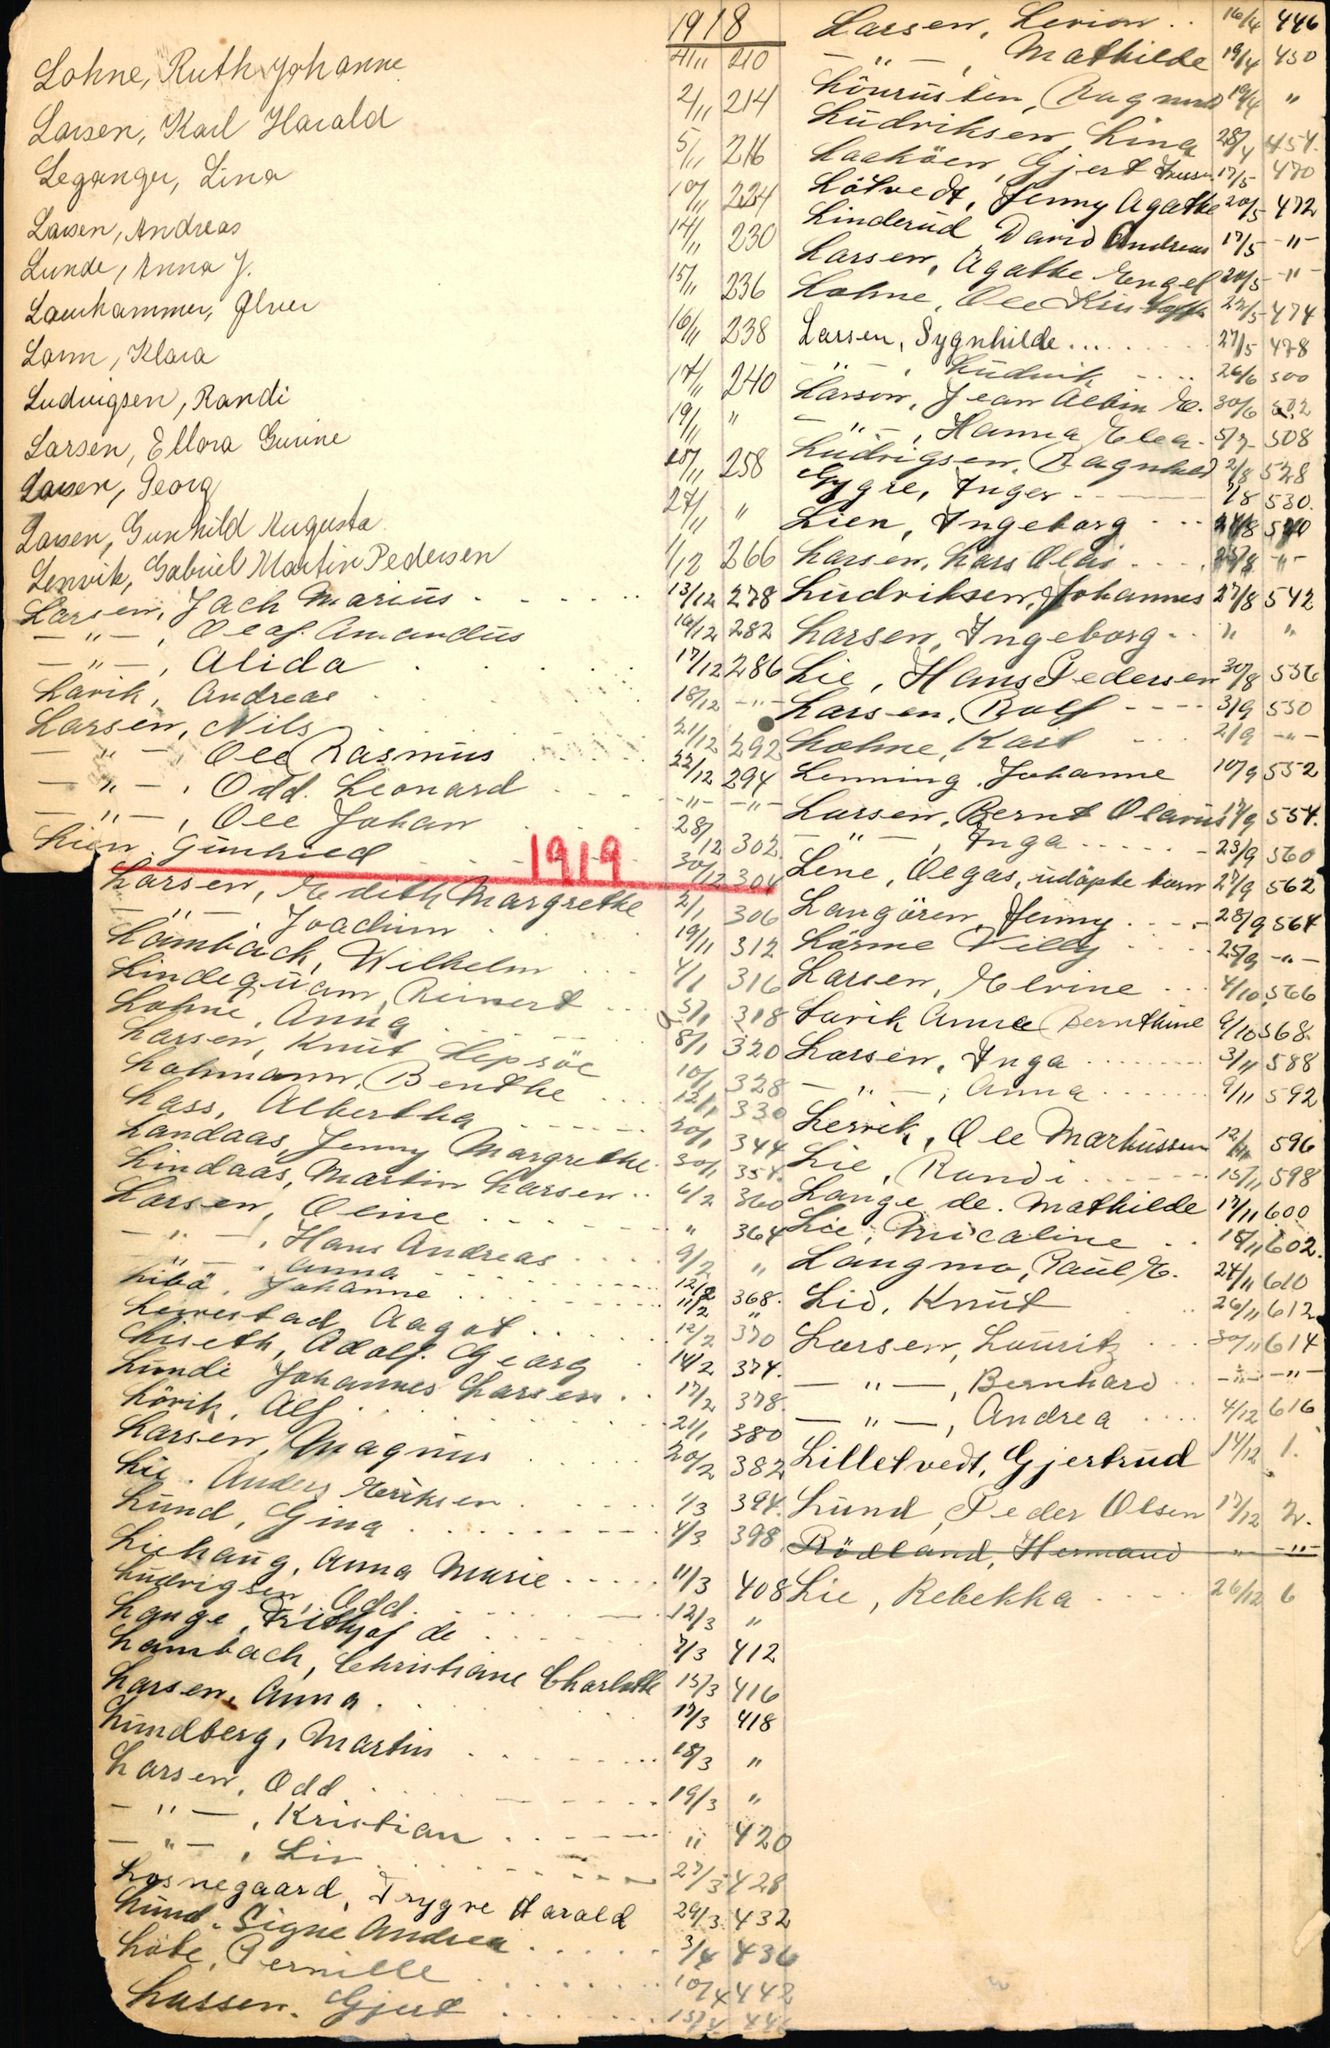 1918
Lohne, Ruth Johanne 4/11 210
Larsen, Karl Harald 2/11 214
Leganger, Lina 5/11 216
Larsen, Andreas 10/11 224
Lunde, Anna J. 14/11 230
Laurhammer, 15/11 236
Larm, Klara 16/11 238
Ludvigsen, Randi 17/11 240
Larsen, Ellora Gurine 19/11 "
Larsen, Georg 25/11 258
Larsen, Gunhild Augusta 27/11 "
Lenvik, Gabriel Martin Pedersen 1/12 266
Larsen, Jach Marius 13/12 278
— " —, Olaf Amandus 16/12 282
— " —, Alida 17/12 286
Larik, Andreas 18/12 - " -
Larsen, Nils 21/12 292
— " —, Ole Rasmus 22/12 294
— " —, Odd Leonard - " - - " -
— " —, Ole Johan 28/12 302
Lien, Gunhild 30/12 304
1919
Larsen, Edith Margrethe 2/1 306
— " — Joachim 19/11 312
Lambach, Wilhelm 4/1 316
Lindequam, Reinert 5/1 318
Lohne, Anna 8/1 320
Larsen, Knut Lepsöe 10/1 328
Lohmann, Benthe 12/1 330
Lass, Albertha 20/1 344
Landaas, Jenny Margrethe 30/1 354.
Lindaas, Martin Larsen 6/2 360
Larsen, Oline " 364
— " —, Hans Andreas 9/2 "
— " —, Anna 12/2 368.
Libä, Johanne 11/2 "
Levrestad Aagot 12/2 370
Liseth, Adolf Georg 14/2 374.
Lunde Johannes Larsen 17/2 378.
Lövik, Alf 21/1 380
Larsen, Magnus 20/2 382
Lie, Anders Eriksen 1/3 394.
Lund, Gina 4/3 398
Liehaug, Anna Marie 11/3 408
Ludvigsen, Odd 12/3 "
Lange, Frithjof de 7/3 412
Lambach, Christiane Charlotte 15/3 416
Larsen, Anna 17/3 418
Lundberg, Martin 18/3 "
Larsen, Odd 19/3 "
— " —, Kristian " 420
— " —, Liv 27/3 428
Losnegaard, Trygve Harald 29/3 432
Lund, Signe Andrea 3/4 436
Lote, Pernille 10/4 442
Lassen, Gjert 15/4 446
Larsen, Levion 16/4 446
— " —, Mathilde 19/4 450
Ragnvald 19/4 "
Ludriksen, Lina 28/4 454.
Gjert 17/5 470
Lötvedt, Jenny Agathe 20/5 472
Linderud David Andreas 17/5 - " -
Larsen, Agathe Engel 20/5 - " -
Lohne, Ole Kristoffer 22/5 474
Larsen, Sygnhilde 27/5 478
— " —, Ludvik 26/6 500
Larson, Jean Albin E. 30/6 502
— " —, Hanna Elea 5/7 508
Ludvigsen, Ragnhild 2/8 528
Lygre, Inger 7/8 530.
Lien, Ingeborg 21/8 540
Larsen, Lars Olai 25/8 - " -
Ludriksen, Johannes 27/8 542
Larsen, Ingeborg " "
Lie, Hans Pedersen 30/8 536
Larsen, Rolf 3/9 550
Lohne, Karl 2/9 - " -
Lenning, Johanne 10/9 552
Larsen, Bernt Olarius 17/9 554.
— " —, Inga 23/9 560
Lene, Olgas, udöpte barn 27/9 562
Langören, Jenny 28/9 564
Lärme Villy 25/9 - " -
Larsen, Elvine 4/10 566
Larik Anna Bernthine 9/10 568
Larsen, Inga 3/11 588
— " —, Anna 9/11 592
Lervik, Ole Markussen 12/11 596
Lie, Randi 15/11 598
Lange de. Mathilde 17/11 600
Lie, Micaline 18/11 602.
Langmo, Paul E. 24/11 610
Lid, Knut 26/11 612
Larsen, Lauritz 30/11 614
— " —, Bernhard - " - - " -
— " —, Andrea 4/12 616
Lilletvedt, Gjertrud 14/12 1.
Lund, Peder Olsen 17/12 2.
Rödland, Hermand " - " -
Lie, Rebekka 26/12 6